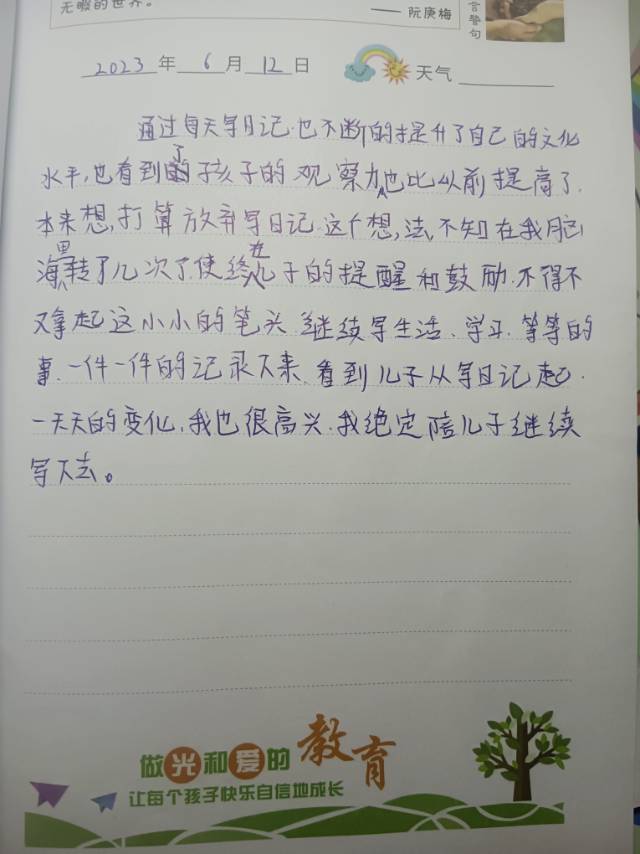 无暇的世界。
—— 阮庚梅
言警句
2023年6月12日 天气
通过每天写日记.也不断的提升了自己的文化
水平,也看到了孩子的观察力也比从前提高了.
本来想,打算放弃写日记.这个想,法,不知在我脑
海里转了几次了.使终在儿子的提醒和鼓励.不得不
又拿起这小小的笔头.继续写生活、学习.等等的
事.一件一件的记录下来.看到儿子从写日记起.
一天天的变化,我也很高兴.我绝定陪儿子继续
写下去。
做光和爱的教育
让每个孩子快乐自信地成长